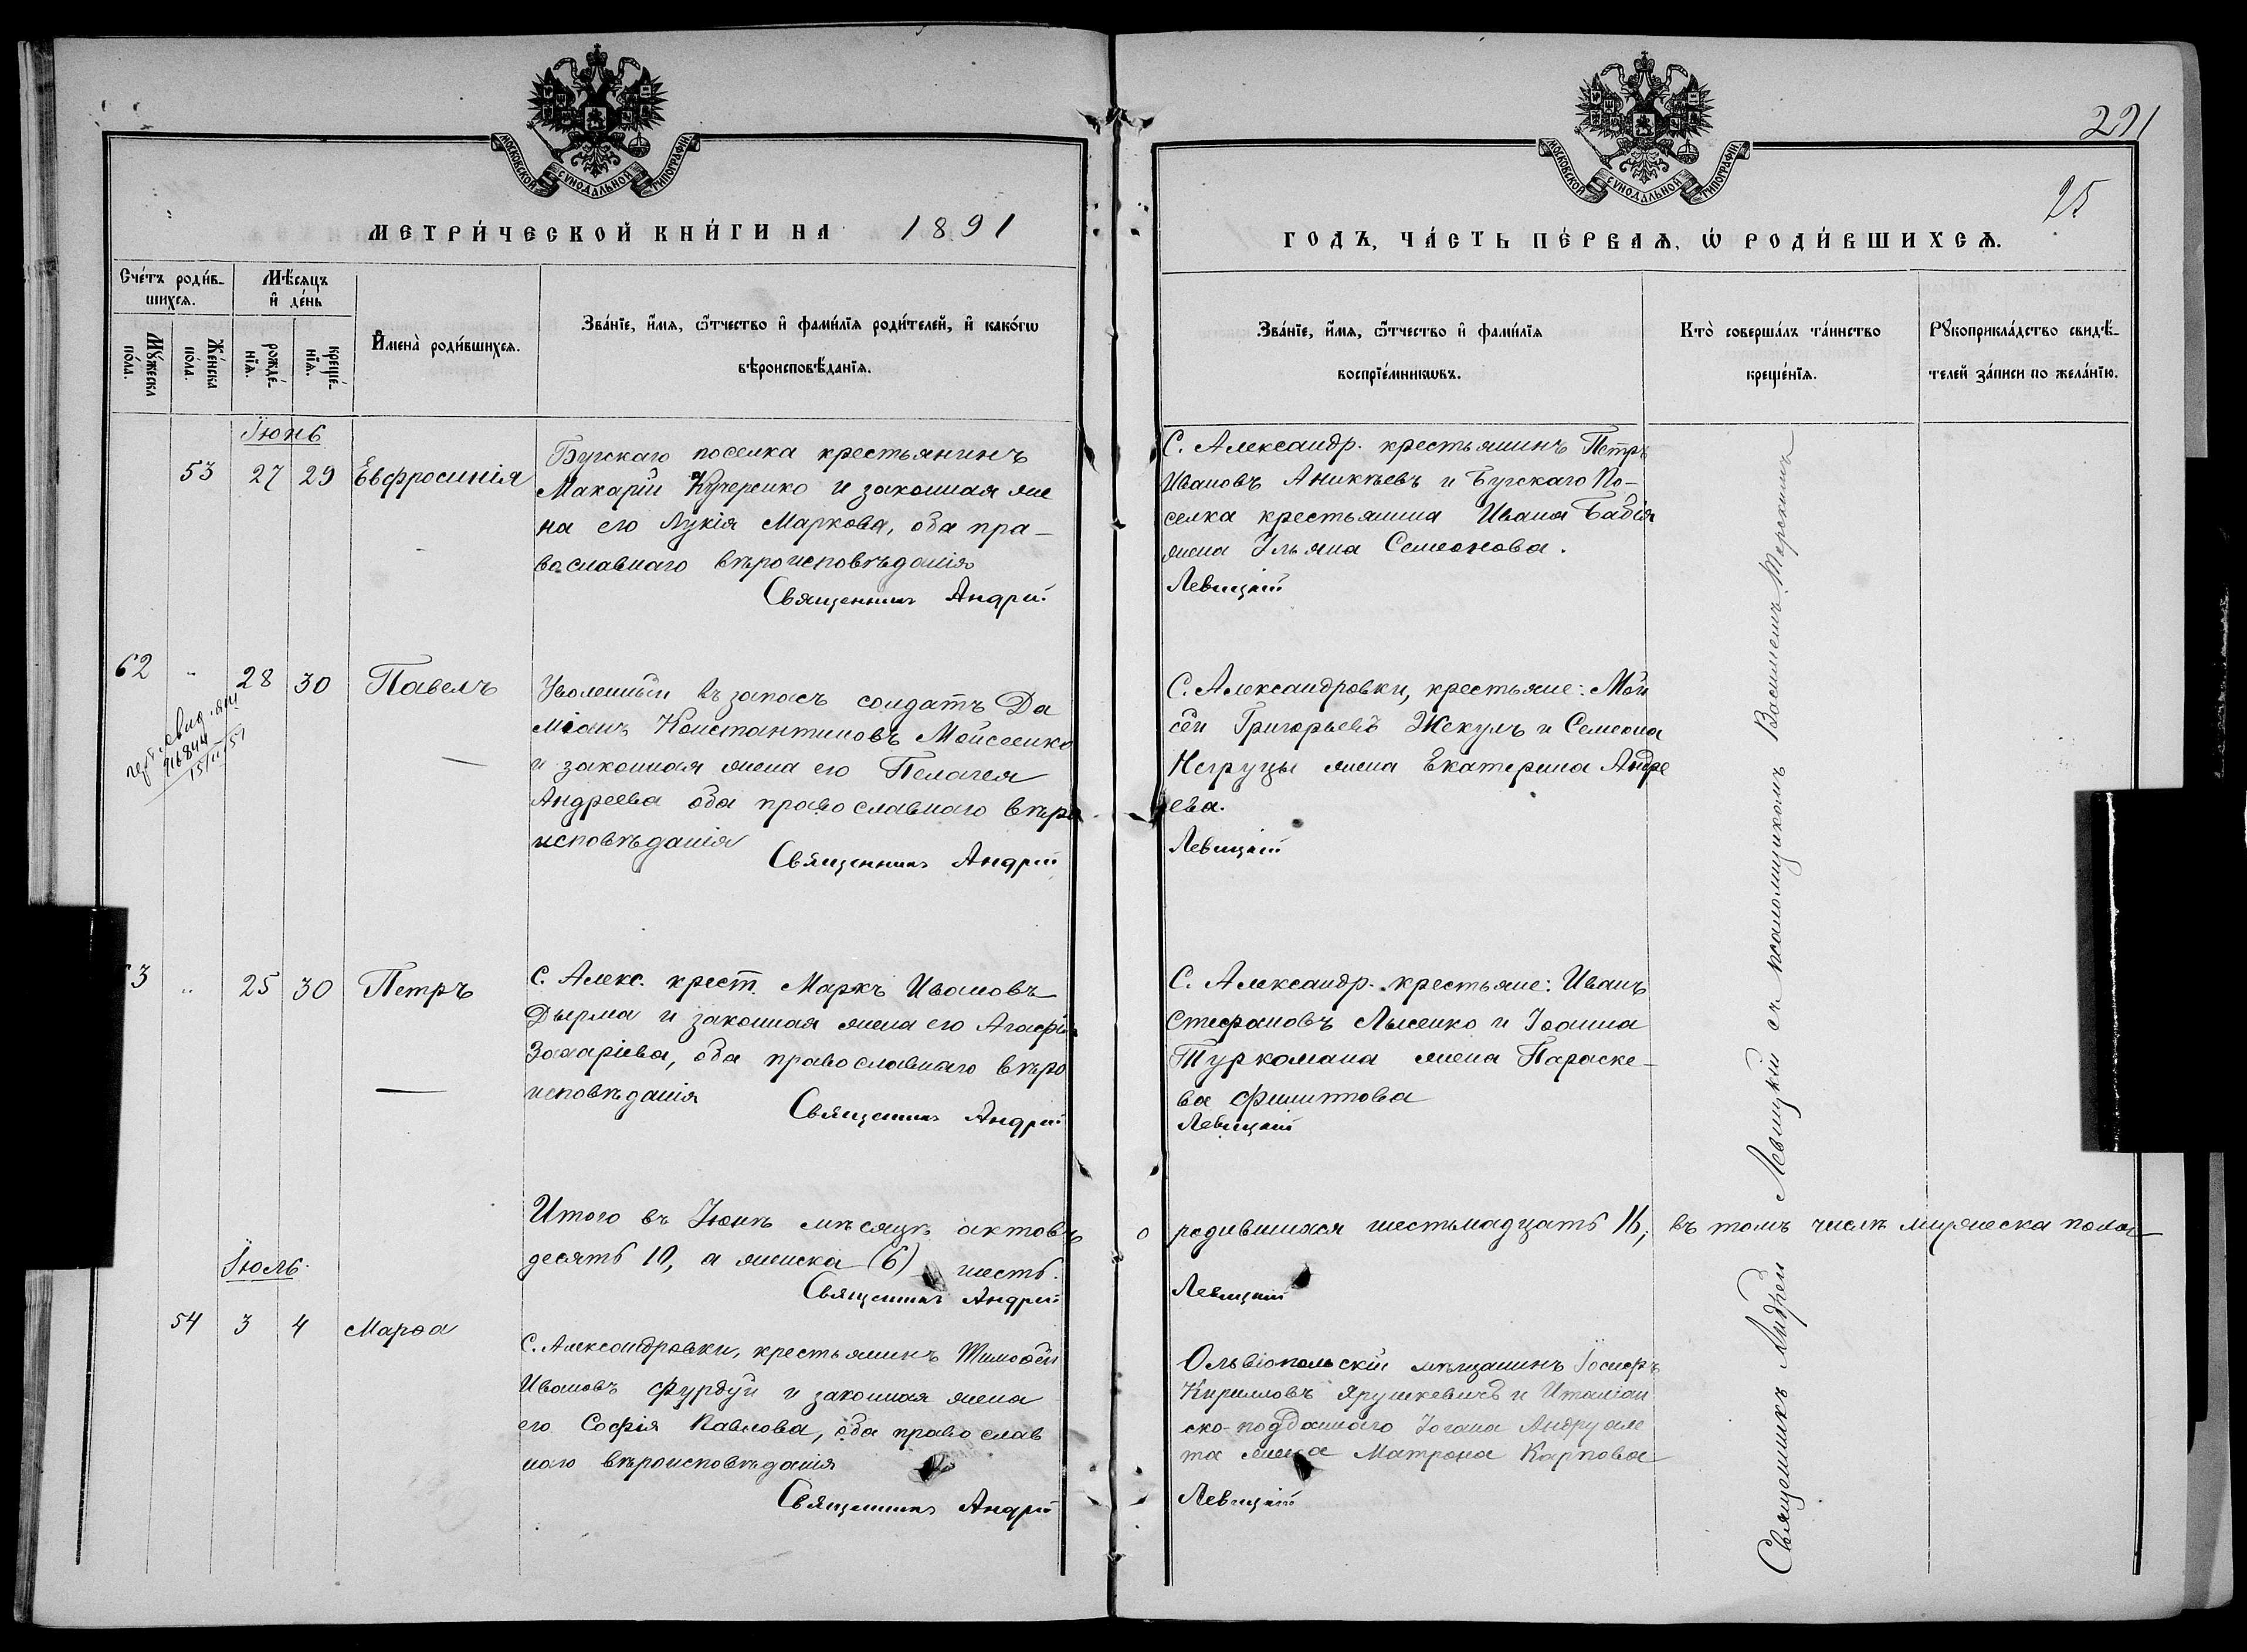 МОСКОВСКОЙ СѴНОДАЛЬНОЙ ТИПОГРАФІИ
МЕТРИ́ЧЕСКОЙ КНИ́ГИ НА 1891
Сче́тъ роди́в-
шихсѧ.
Мꙋ́жеска
по́ла.
Же́нска
по́ла.
Мѣ́сѧцъ
и҆ де́нь
рожде́-
нїѧ.
креще́-
нїѧ.
И҆мена̀ роди́вшихсѧ.
Зва́нїе, и҆́мѧ, ѻ҆́тчество и҆ фами́лїѧ роди́телей, и҆ како́гѡ
вѣроисповѣ́данїѧ.
Іюнь
53 27 29 Евфросинія
Бугскаго поселка крестьянинъ
Макарій Кучеренко и законная же
на его Лукія Маркова, оба пра-
вославнаго вѣроисповѣданія
Священникъ Андрей
62 " 28 30 Павелъ
Уволенный въ запасъ солдатъ Да
міанъ Константиновъ Мойсеенко
и законная жена его Пелагея
Андреева оба православнаго вѣро
исповѣданія
Священникъ Андрей
свид.
916844
63 " 25 30 Петръ
С. Алекс. крест. Маркъ Ивановъ
Дырма и законная жена его Агафія
Захаріева, оба православнаго вѣро
исповѣданія
Священникъ Андрей
Итого въ Іюнѣ мѣсяцѣ актовъ
десять 10, а женска (6) шесть.
Священникъ Андрей
Іюль
54 3 4 Марѳа
С. Александровки, крестьянинъ Тимоѳей
Ивановъ Фурдуй и законная жена
его Софія Павлова, оба православ
наго вѣроисповѣданія
Священникъ Андрей
МОСКОВСКОЙ СѴНОДАЛЬНОЙ ТИПОГРАФІИ
291
25
ГОДЪ, ЧА́СТЬ ПЕ́РВАѦ, Ѡ҆ РОДИ́ВШИХСѦ.
Зва́нїе, и҆́мѧ, ѻ҆́тчество и҆ фами́лїѧ
воспрїе́мникѡвъ.
Кто̀ соверша́лъ та́инство
креще́нїѧ.
Рꙋкоприкла́дство свидѣ́-
телей за́писи по жела́нїю.
С. Александр. крестьянинъ Петръ
Ивановъ Аникѣевъ и Бугскаго По-
селка крестьянина Ивана Бабія
жена Ульяна Семенова.
Левицкій
С. Александровки, крестьяне: Мой
сей Григорьевъ Жекулъ и Семеона
Негруцы жена Екатерина Андре
ева.
Левицкій
С. Александр. крестьяне: Иванъ
Стефановъ Лысенко и Іоанна
Туркомана жена Параске-
ва Филиппова
Левицкій
о родившихся шестьнадцать 16, въ томъ числѣ мужеска пола
Левицкій
Ольвіопольскій мѣщанинъ Іосифъ
Кирилловъ Ярушкевичъ и Италіан
ско-подданнаго Іогана Андруале
та жена Матрона Карпова
Левицкій
Священникъ Андрей Левицкій съ псаломщикомъ Василіемъ Терскимъ